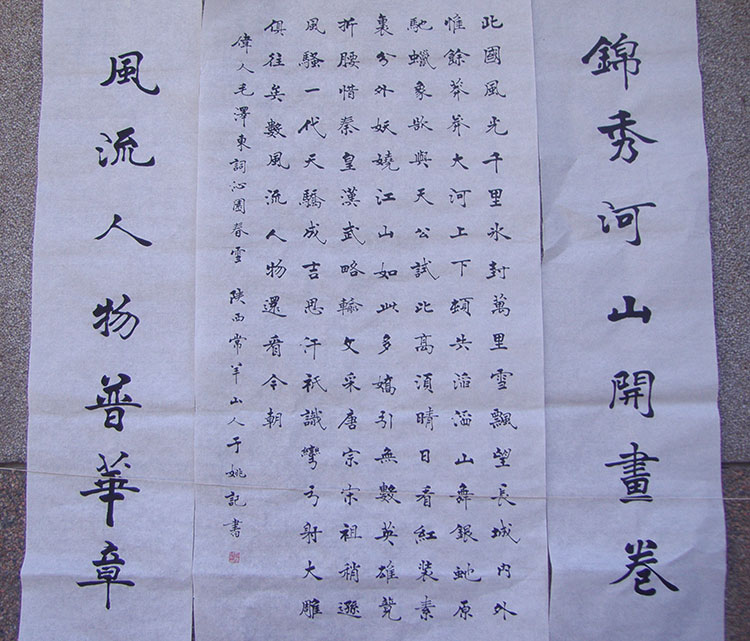 錦秀河山開畫卷
北國風光千里冰封萬里雪飄望長城內外
惟餘莽莽大河上下頓失滔滔山舞銀虵原
馳蠟象欲與天公試比高須晴日看紅裝素
裹分外妖嬈江山如此多嬌引無數英雄競
折腰惜秦皇漢武略輸文采唐宗宋祖稍遜
風騷一代天驕成吉思汗祇識彎弓射大雕
俱往矣數風流人物還看今朝
偉人毛澤東詞沁園春雪 陝西常羊山人于姚記書
風流人物普華章